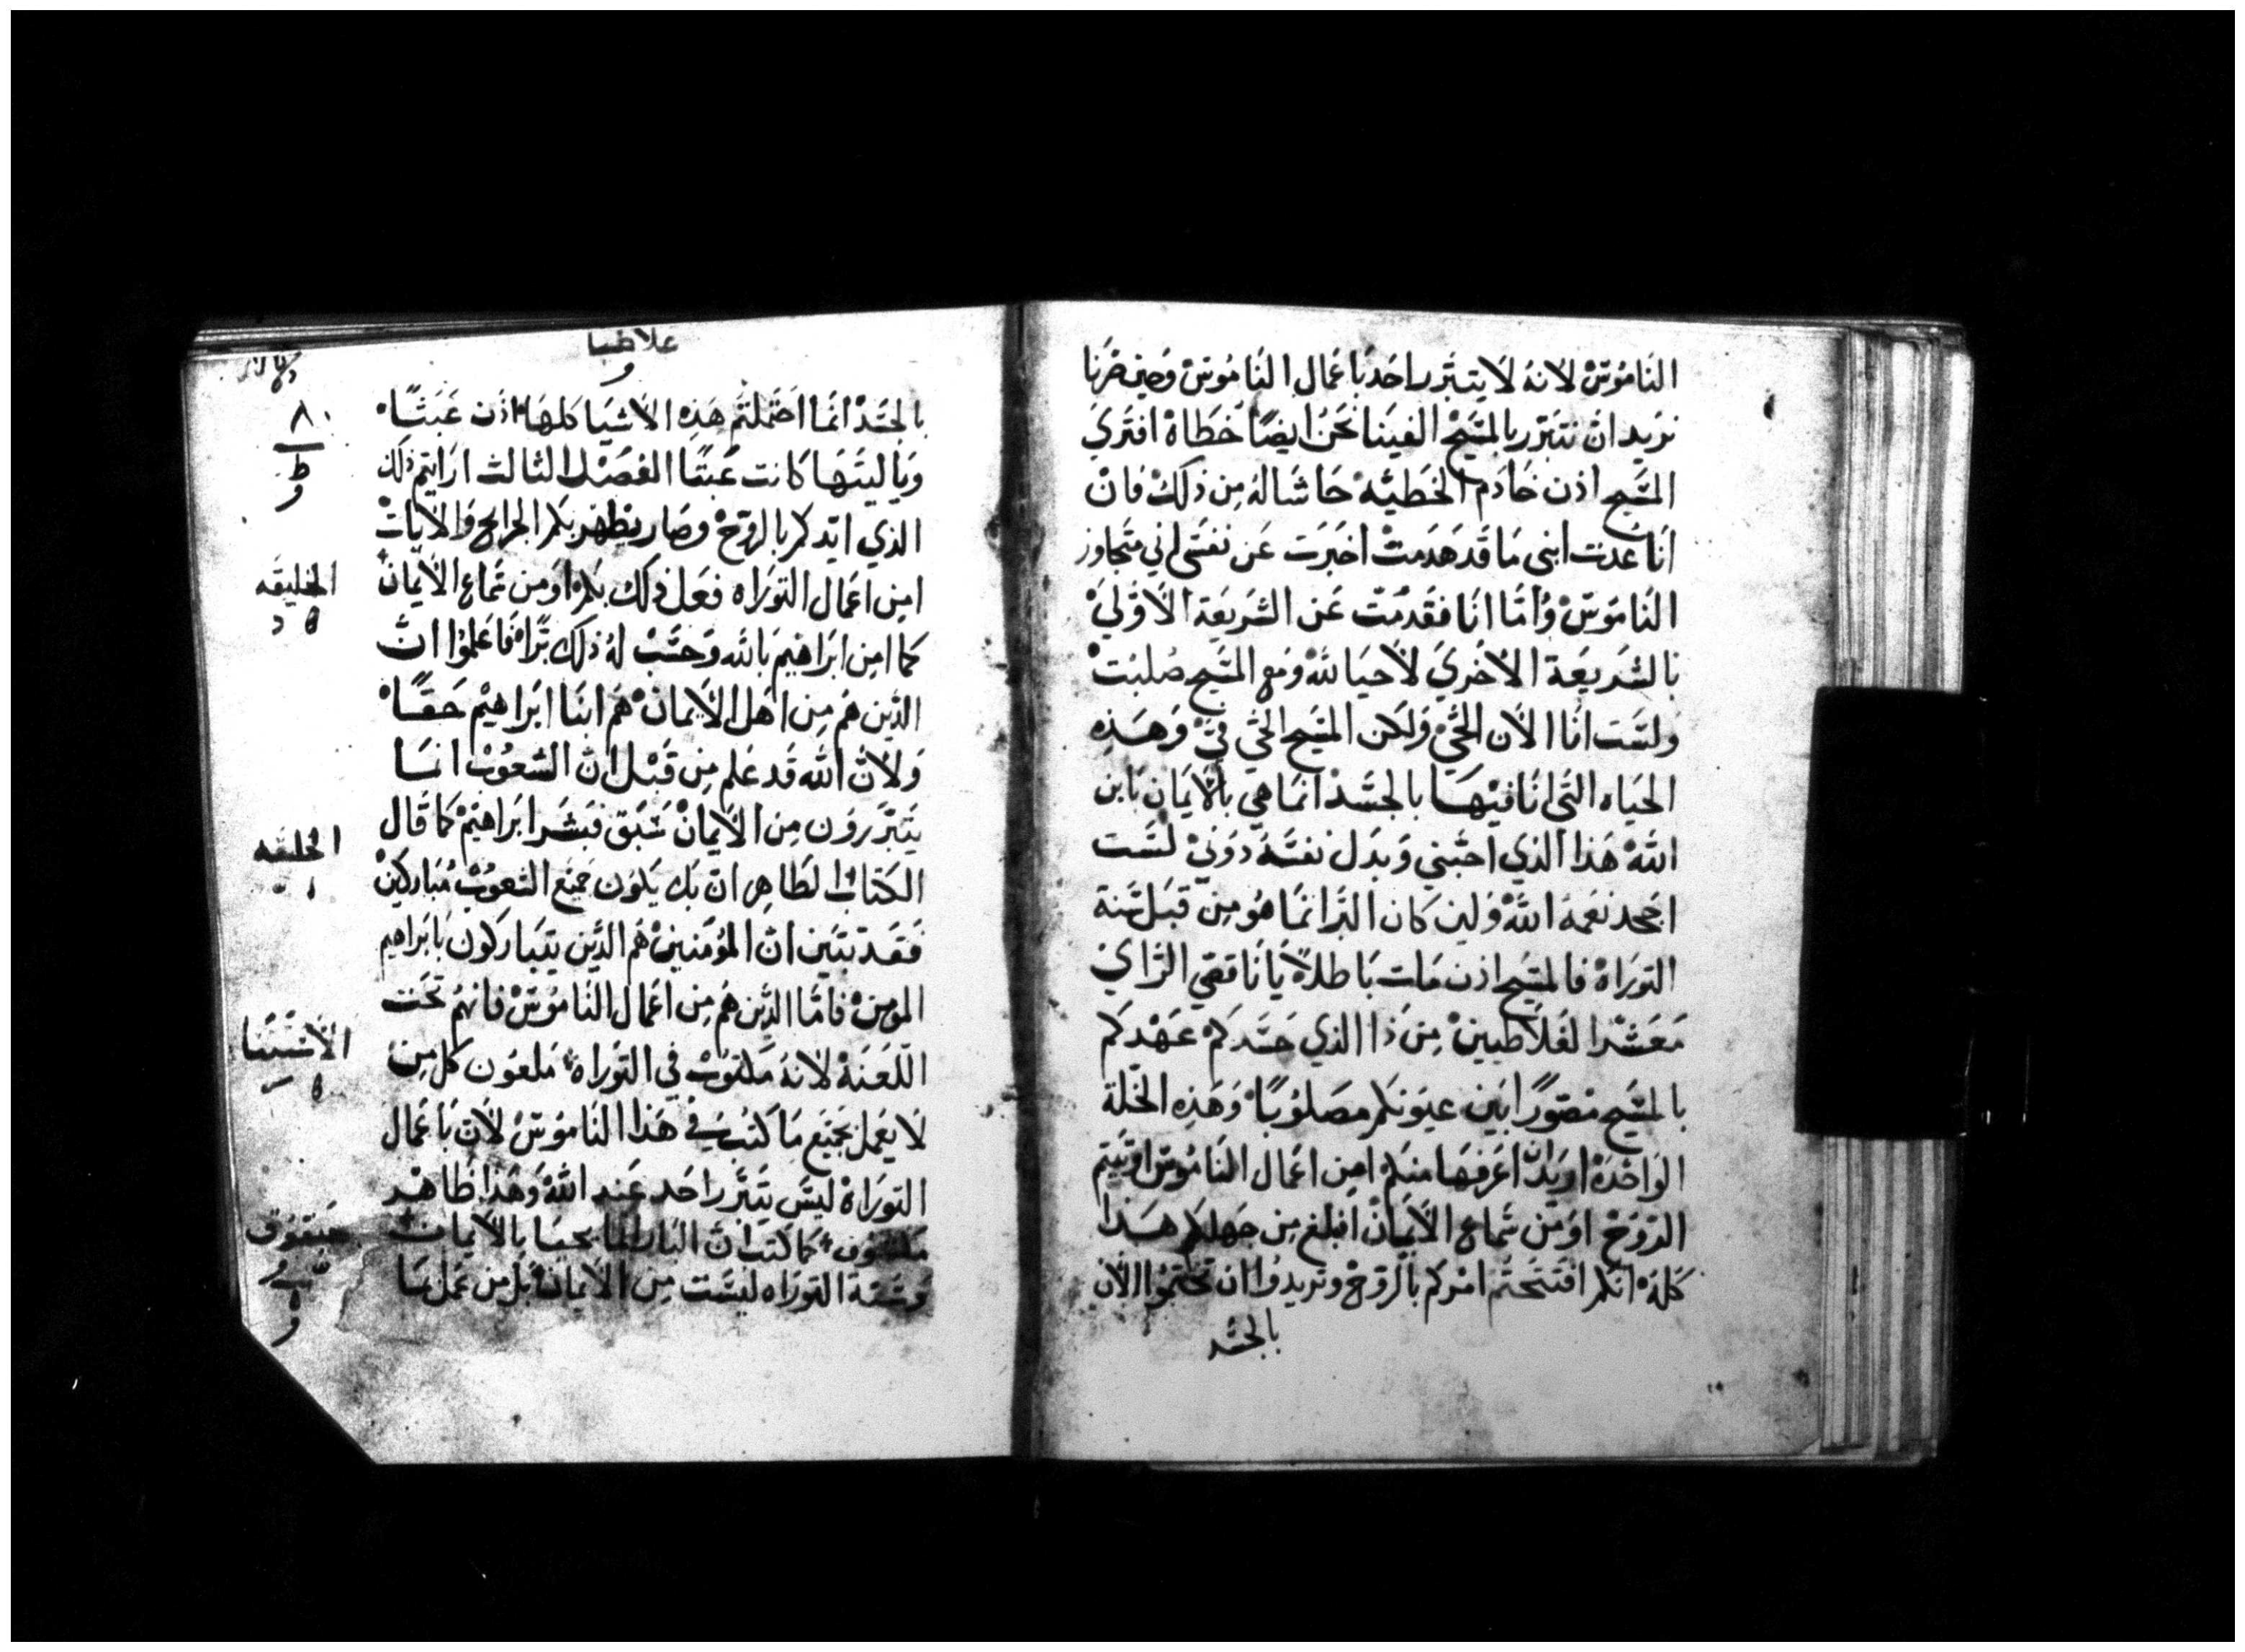 الناموس لانه لا يتبرر احد باعمال الناموس وحين صرنا
نريد ان نتبرر بالمسيح الفينا نحن ايضًا خطاة افترى
المسيح اذن خادم الخطيئه حاشا له من ذلك فان
انا عدت ابني ما قد هدمت اخبرت عن نفسي اني متجاوز
الناموس واما انا فقد مت عن الشريعة الاولي
بالشريعة الاخري لاحيا لله ومع المسيح صلبت
ولست انا الان الحي ولكن المسيح الحي في وهذه
الحياه التي انا فيها بالجسد انما هي بالايمان بابن
الله هذا الذي احبني وبدل نفسه دوني لست
اجحد نعمة الله ولين كان البر انما هو من قبل سنة
التوراة فالمسيح اذن مات باطلاً يا ناقصي الراي
معشر الغلاطيين من ذا الذي حسدكم عهدكم
بالمسيح مصورًا بين عيونكم مصلوبًا وهذه الخلة
الواحدة اريد ان اعرفها منكم امن اعمال الناموس اوتيتم
الروح او من سماع الايمان افبلغ من جهلكم هذا
كله انكم افتتحتم امركم بالروح وتريدوا ان تختموا الان
بالجسد
غلاطيا
و
بالجسد انما احتملتم هذه الاشيا كلها اذن عبثًا
ويا ليتها كانت عبثًا الفصل الثالث ارايتم ذلك
الذي ايدكم بالروح وصار يظهر بكم الجرايح والايات
امن اعمال التوراه فعل ذلك بكم او من سماع الايمان
كما امن ابراهيم بالله وحسب له ذلك برًا فاعلموا ان
الذين هم من اهل الايمان هم ابنا ابراهيم حقًا
ولان الله قد علم من قبل ان الشعوب انما
يتبررون من الايمان سبق فبشر ابراهيم كما قال
الكتاب الطاهر ان بك يكون جميع الشعوب مباركين
فقد تبين ان المؤمنين هم الذين يتباركون بابراهيم
المومن فاما الذين هم من اعمال الناموس فانهم تحت
اللعنة لانه مكتوب في التوراه ملعون كل من
لا يعمل بجميع ما كتب في هذا الناموس لان باعمال
التوراة ليس يتبرر احد عند الله وهذا ظاهر
مكشوف كما كتب ان البار انما يحيا بالايمان
وسنة التوراه ليست من الايمان بل من عمل بما
٨٠
ط
الخليقه
الخليقه
الاستثنا
حبقوق